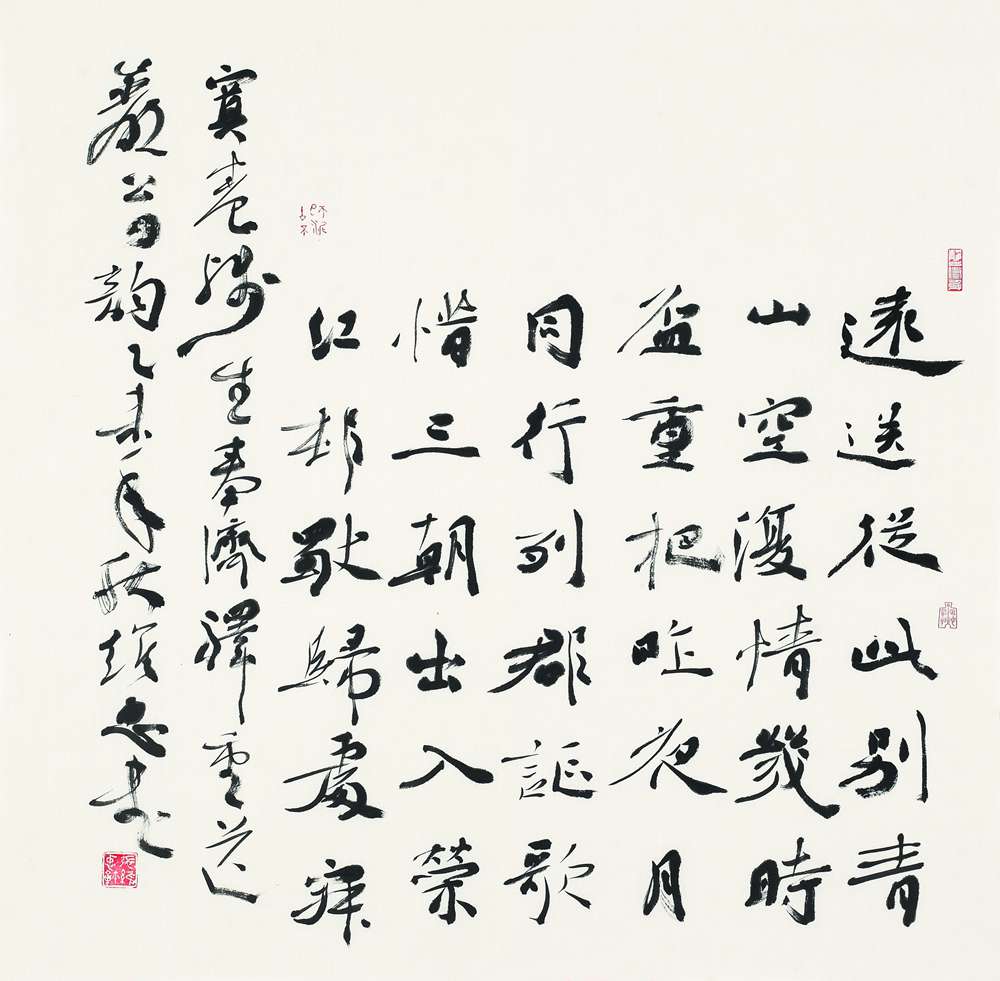 遠送從此別青
山空復情幾時
盃重把昨夜月
同行列郡謳歌
惜三朝出入榮
江村獨歸處寂
寞養殘生奉濟驛重送
嚴公四韻乙未年秋忠書